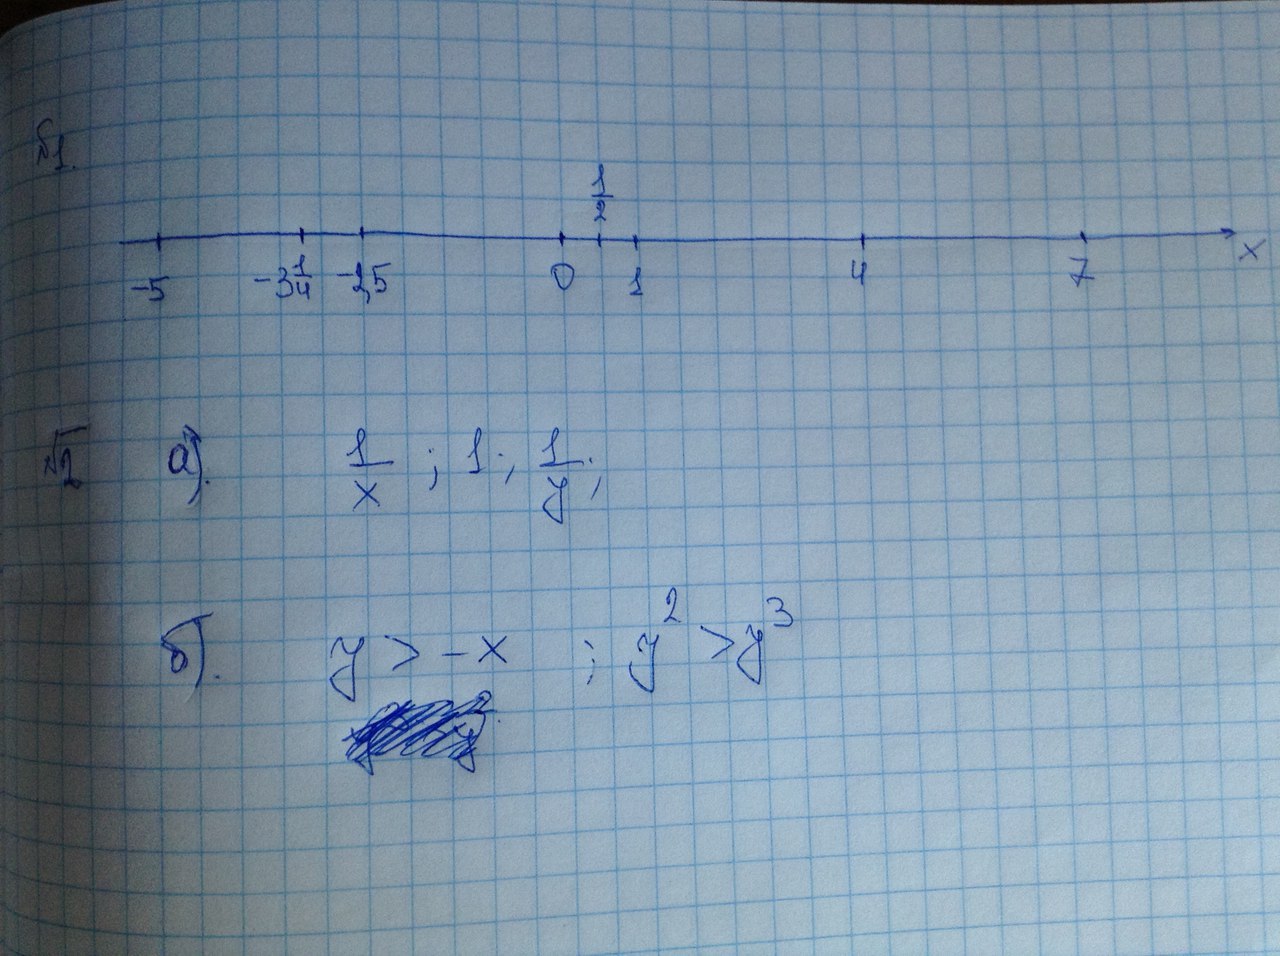 №1.
1/2
-5 -3 1/4 -2,5 0 1 4 7 x
№2 а). 1/x ; 1 ; 1/y ;
б). y > -x ; y² > y³